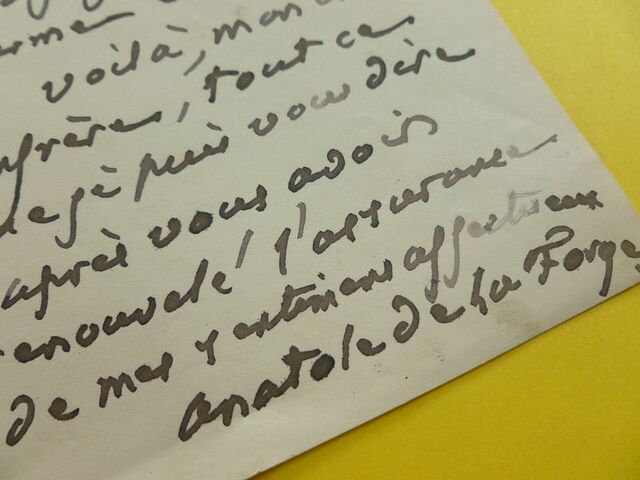 voilà, mon
tout ce
que je puis vous dire
après vous avoir
renouvelé l'assurance
de mes sentimens affectueux
anatole de La Forge